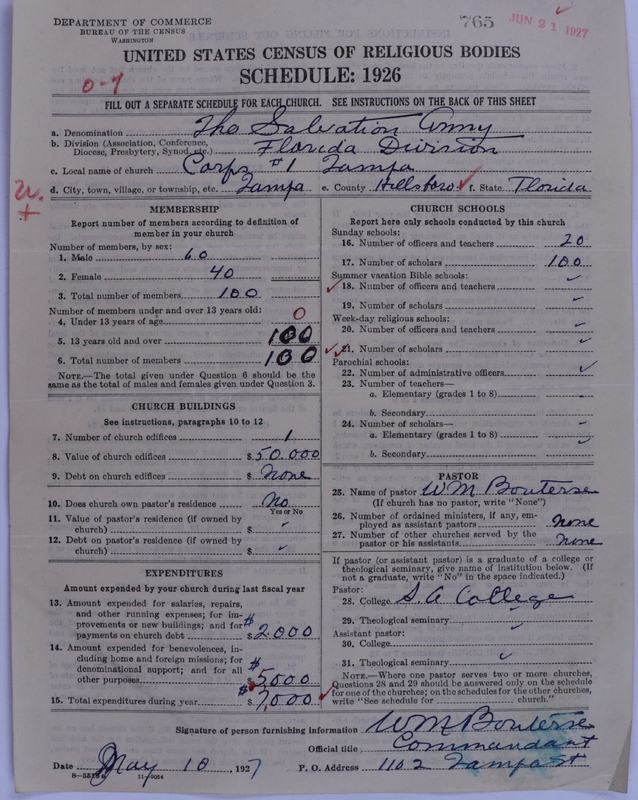 DEPARTMENT OF COMMERCE
BUREAU OF THE CENSUS
WASHINGTON
765
JUN 21 1927
UNITED STATES CENSUS OF RELIGIOUS BODIES
SCHEDULE: 1926
0-7
FILL OUT A SEPARATE SCHEDULE FOR EACH CHURCH. SEE INSTRUCTIONS ON THE BACK OF THIS SHEET
a. Denomination The Salvation Army
b. Division (Association, Conference, Diocese, Presbytery, Synod, etc.) Florida Division
c. Local name of church Corps #1 Tampa
d. City, town, village, or township, etc. Tampa e. County Hillsboro f. State Florida
MEMBERSHIP
Report number of members according to definition of
member in your church
Number of members, by sex:
1. Male 60
2. Female 40
3. Total number of members 100
Number of members under and over 13 years old:
4. Under 13 years of age 0
5. 13 years old and over 100
6. Total number of members 100
NOTE.—The total given under Question 6 should be
same as the total of males and females given under Question 3.
CHURCH BUILDINGS
See instructions, paragraphs 10 to 12
7. Number of church edifices 1
8. Value of church edifices $50.000
9. Debt on church edifices $ None
10. Does church own pastor's residence? No
Yes or No
11. Value of pastor's residence (if owned by
church) $ ✓
12. Debt on pastor's residence (if owned by
church) $ ✓
EXPENDITURES
Amount expended by your church during last fiscal year
13. Amount expended for salaries, repairs,
and other running expenses; for im-
provements or new buildings; and for
payments on church debt $2.000
14. Amount expended for benevolences, in-
cluding home and foreign missions; for
denominational support; and for all
other purposes $5000
15. Total expenditures during year $7000
CHURCH SCHOOLS
Report here only schools conducted by this church
Sunday schools:
16. Number of officers and teachers 20
17. Number of scholars 100
Summer vacation Bible schools:
18. Number of officers and teachers
19. Number of scholars
Week-day religious schools:
20. Number of officers and teachers
21. Number of scholars
Parochial schools:
22. Number of administrative officers
23. Number of teachers—
a. Elementary (grades 1 to 8)
b. Secondary
24. Number of scholars—
a. Elementary (grades 1 to 8)
b. Secondary
PASTOR
25. Name of pastor WM Bouterse
(If church has no pastor, write "None")
26. Number of ordained ministers, if any, em-
ployed as assistant pastors none
27. Number of other churches served by the
pastor or his assistants none
If pastor (or assistant pastor) is a graduate of a college or
theological seminary, give name of institution below. (If
not a graduate, write "No" in the space indicated.)
Pastor:
28. College S. A College
29. Theological seminary
Assistant pastor:
30. College
31. Theological seminary
NOTE.—Where one pastor serves two or more churches,
Questions 28 and 29 should be answered only on the schedule
for one of the churches; on the schedules for the other churches,
write "See schedule for ____ church."
Signature of person furnishing information WM Bouterse
Official title Commandant
Date May 10 1927 P. O. Address 1102 Tampa St